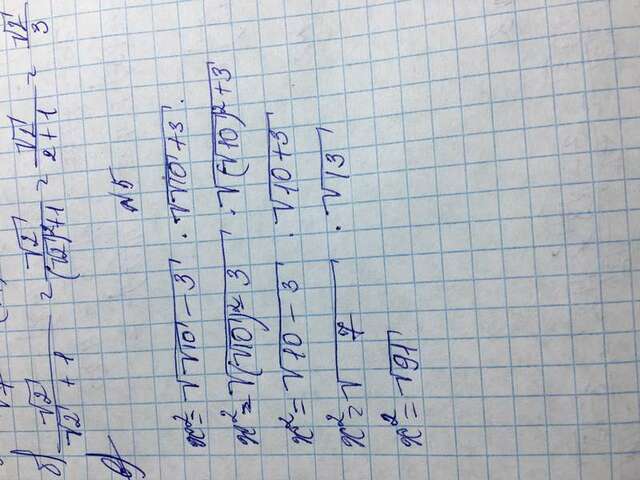 б) √2 / (√2 + 1) = √2 / ((√2)²+1) = √2 / (2+1) = √2 / 3
в)
№5
x² = √(√10 − 3) · √(√10 + 3).
x² = √((√10)² − 3) · √((√10)² + 3)
x² = √(10 − 3) · √(10 + 3)
x² = √7 · √13
x² = √91